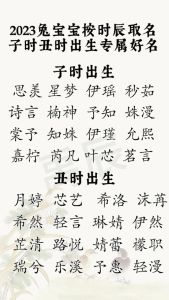 2023兔宝宝按时辰取名
子时丑时出生专属好名
子时出生
思美 星梦 伊瑶 秒茹
诗言 楠神 予知 姝漫
棠予 知姝 伊瑾 允熙
嘉柠 芮凡 叶芯 茗言
丑时出生
月婷 芯艺 希洛 沫苒
希然 轻言 琳婧 伊然
芷清 路悦 婧蕾 檬职
瑞兮 乐溪 予惠 轻漫